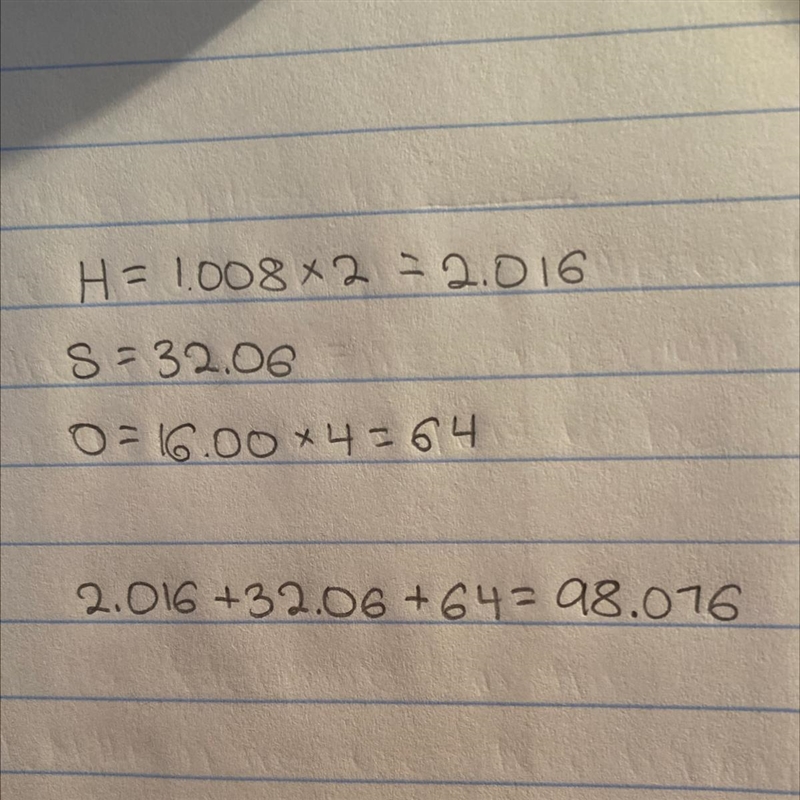 H = 1.008 × 2 = 2.016
S = 32.06
O = 16.00 × 4 = 64
2.016 + 32.06 + 64 = 98.076